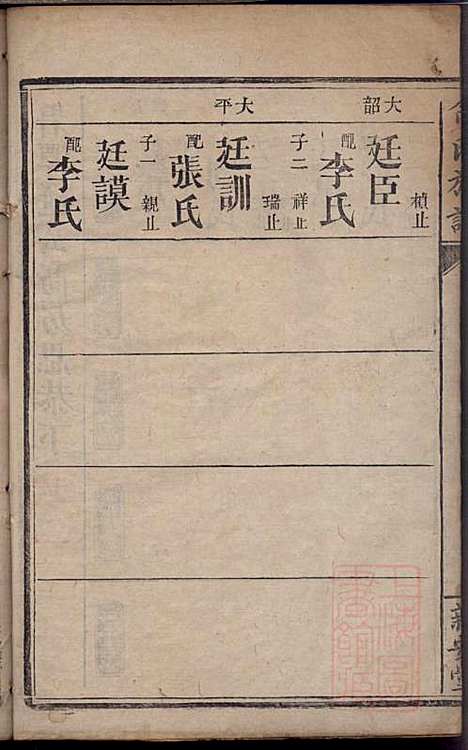 大韶
大平
楨止
廷臣
配李氏
子二 祥止
瑞止
廷訓
配張氏
子一 親止
廷謨
配李氏
氏族譜